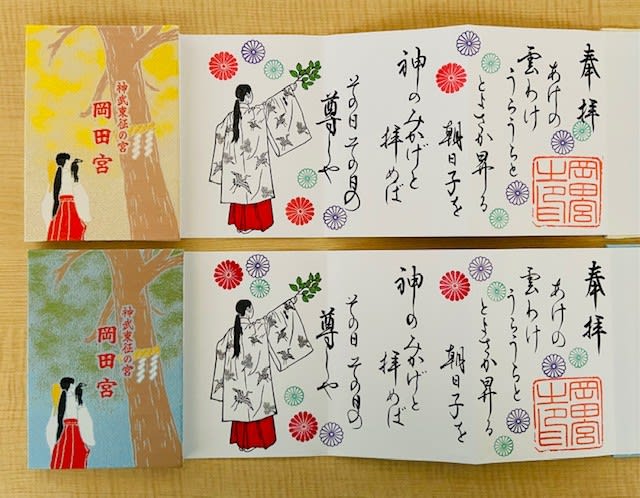 神武東征の宮
岡田宮
奉拝
あけの
雲わけ
うらうらと
とよさか昇る
朝日子を
神のみかげと
拝めば
その日その日の
尊しや
岡田宮
神武東征の宮
岡田宮
奉拝
あけの
雲わけ
うらうらと
とよさか昇る
朝日子を
神のみかげと
拝めば
その日その日の
尊しや
岡田宮